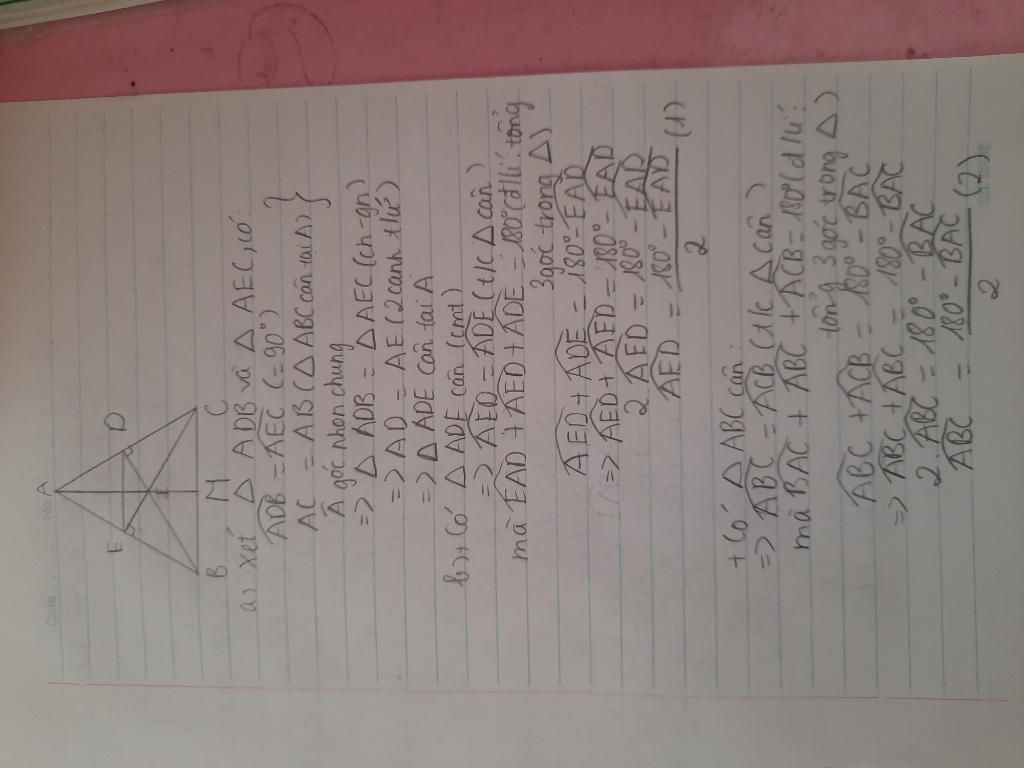 Date
No.
A
E
D
I
B M C
a) xét △ ADB và △ AEC, có:
ADB = AEC (= 90°)
AC = AB (△ ABC cân tại A) }
A góc nhọn chung
=> △ ADB = △ AEC (ch-gn)
=> AD = AE (2 cạnh tứ)
=> △ ADE cân tại A
b) + Có △ ADE cân (cmt)
=> AED = ADE (t/c △ cân)
mà EAD + AED + ADE = 180° (đ lí: tổng
3 góc trong △)
AED + ADE = 180° - EAD
=> AED + AED = 180° - EAD
2 AED = 180° - EAD
AED = 180° - EAD / 2 (1)
+ Có △ ABC cân:
=> ABC = ACB (t/c △ cân)
mà BAC + ABC + ACB = 180° (đ lí:
tổng 3 góc trong △)
ABC + ACB = 180° - BAC
=> ABC + ABC = 180° - BAC
2 ABC = 180° - BAC
ABC = 180° - BAC / 2 (2)